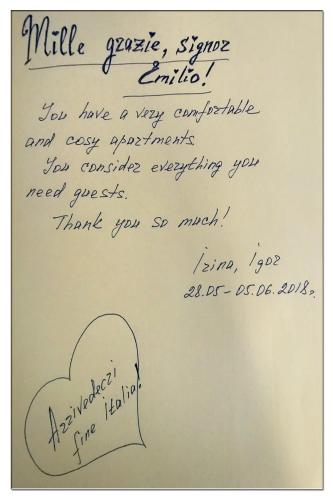 Mille grazie, signor
Emilio!
You have a very comfortable
and cosy apartments.
You consider everything you
need guests.
Thank you so much!
Irina, Igor
28.05-05.06.2018г.
Arrivedeczi
fine italia!